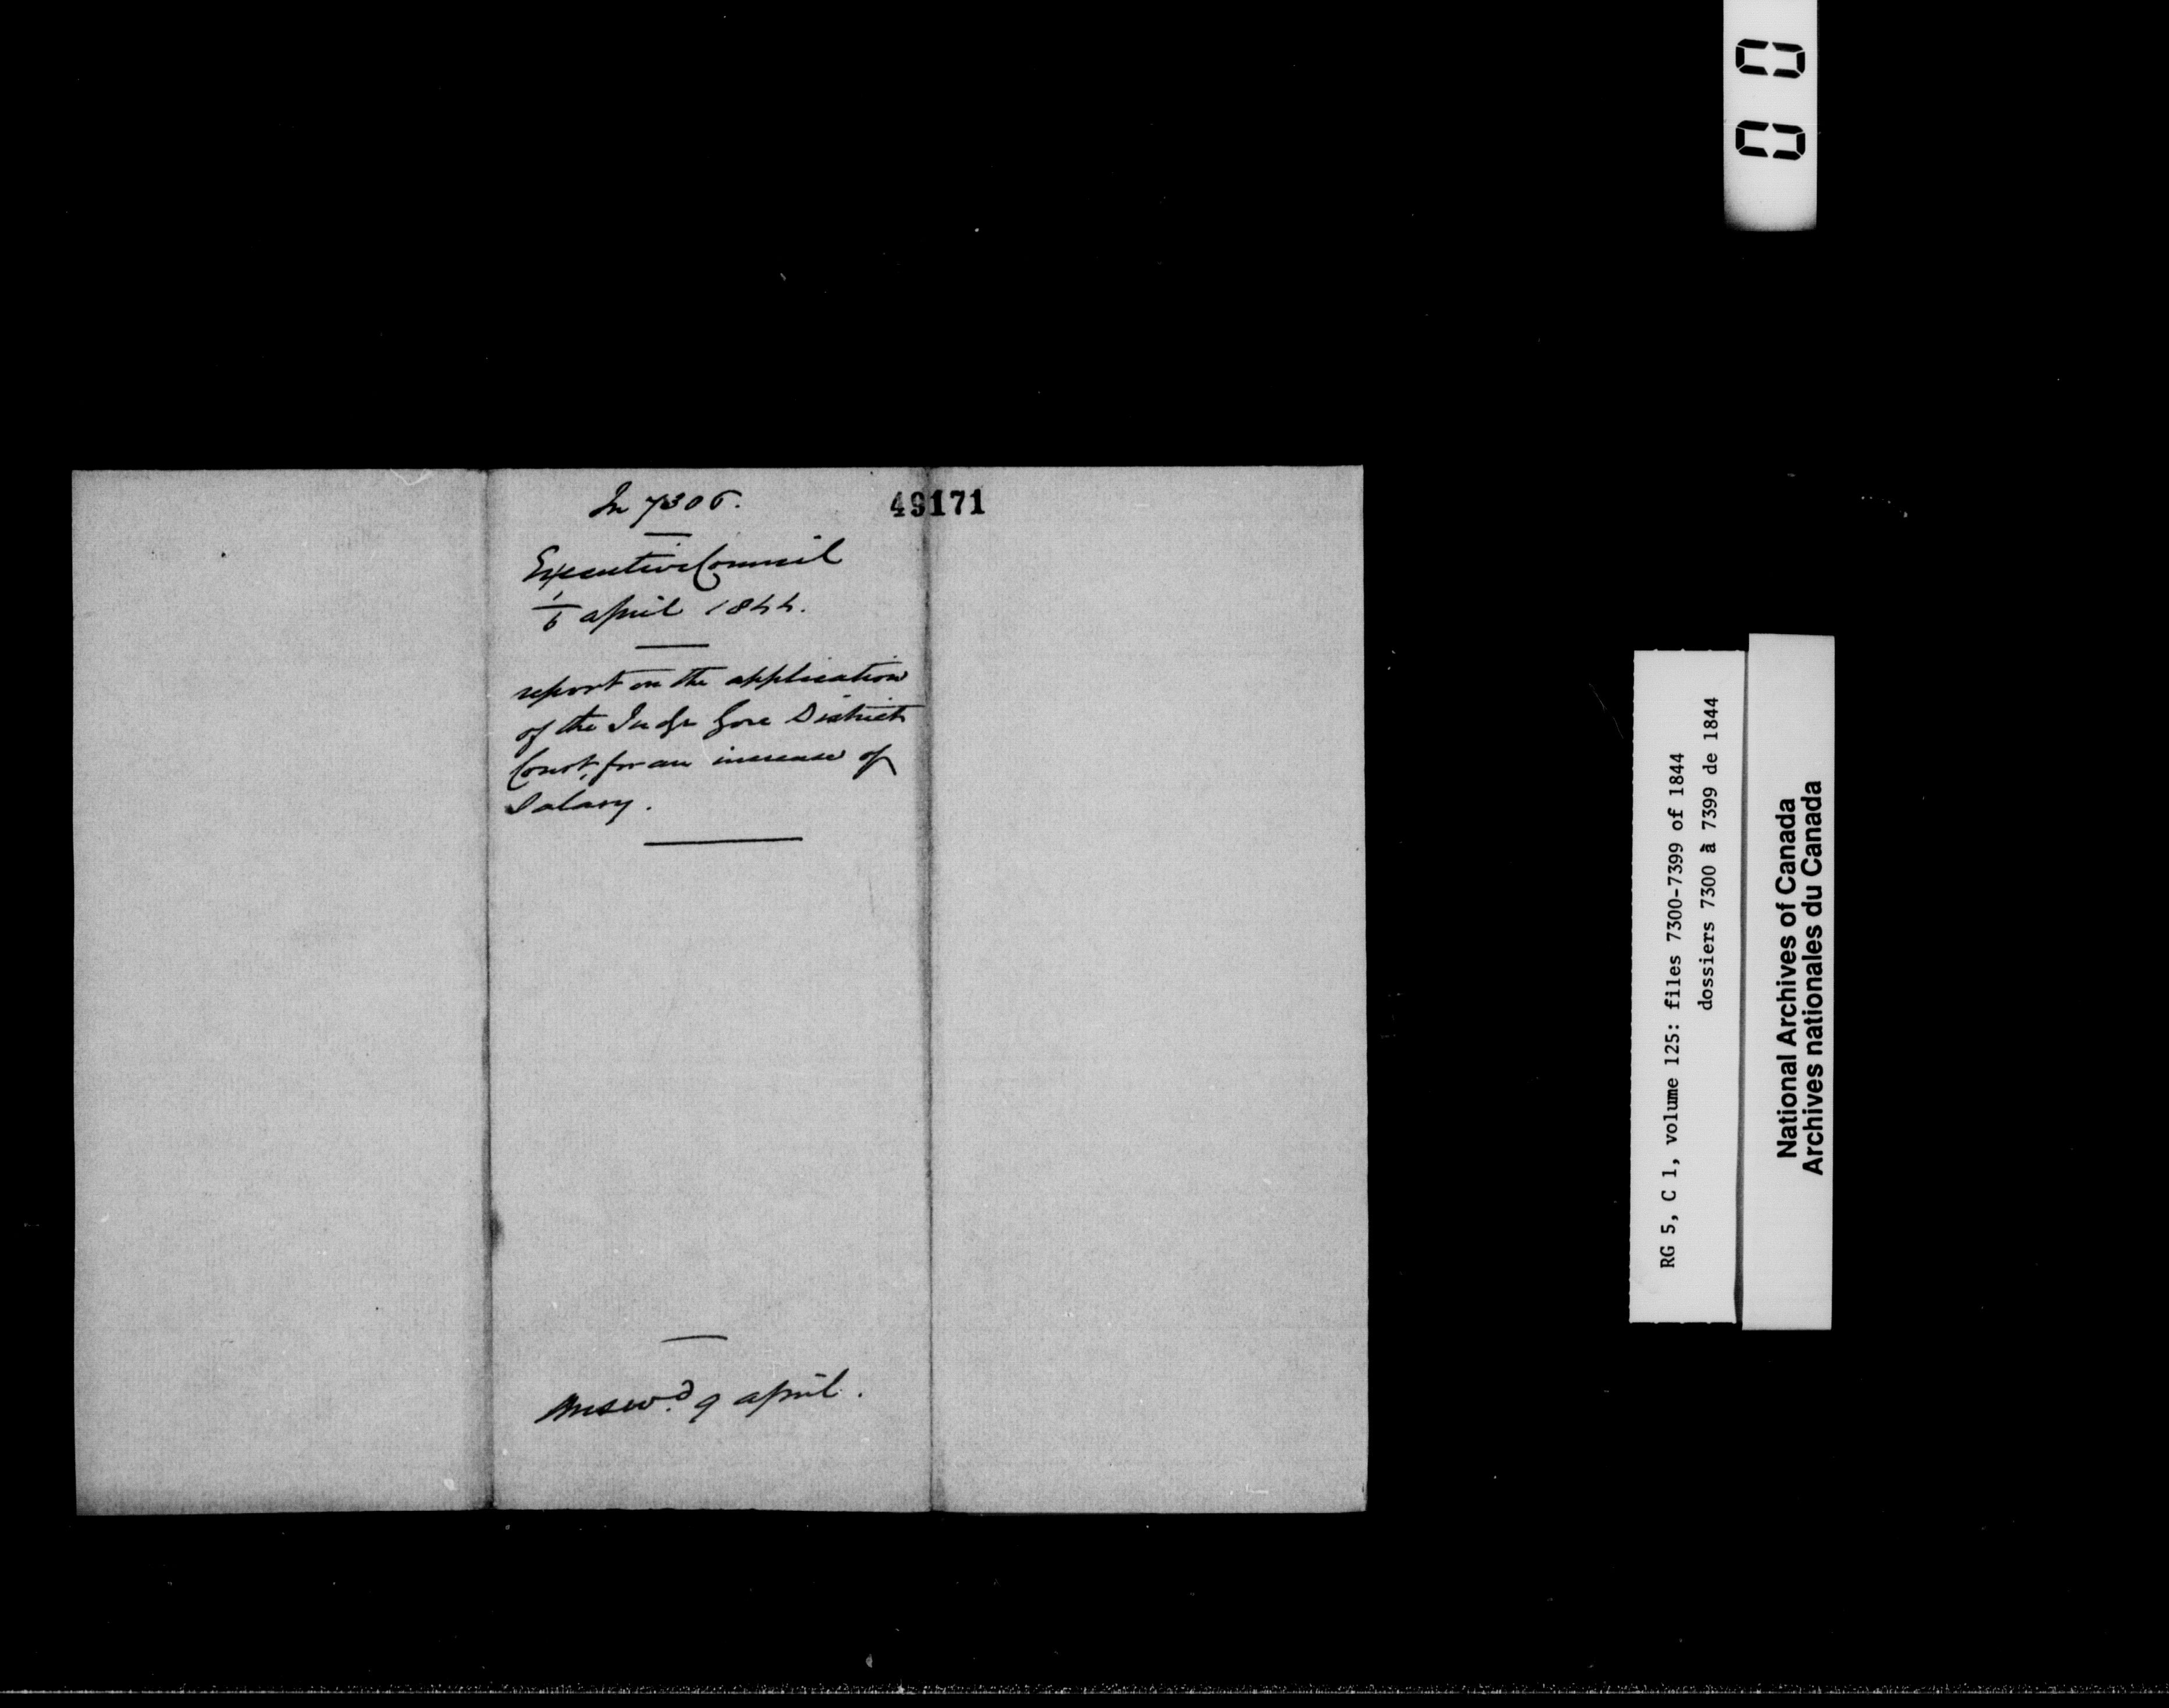 In 7306.
49171
Executive Council
1/6 april 1844.
report on the application
of the Judge Gore District
Court, for an increase of
Salary.
Answ.d 9 april.
RG 5, C 1, volume 125: files 7300-7399 of 1844
dossiers 7300 à 7399 de 1844
National Archives of Canada
Archives nationales du Canada
00